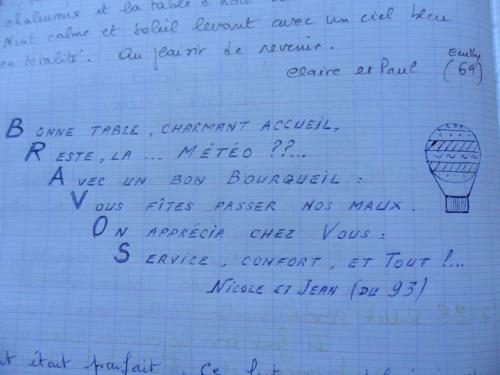 chaleureux et la table d'hôte
Nuit calme et soleil levant avec un ciel bleu
en totalité. Au plaisir de revenir.
Claire et Paul Ecully (69)
BONNE TABLE, CHARMANT ACCUEIL,
RESTE, LA ... MÉTÉO ??...
AVEC UN BON BOURGUEIL :
VOUS FÎTES PASSER NOS MAUX.
ON APPRÉCIA CHEZ VOUS :
SERVICE, CONFORT, ET TOUT !...
NICOLE ET JEAN (DU 93)
était parfait. Ce fut